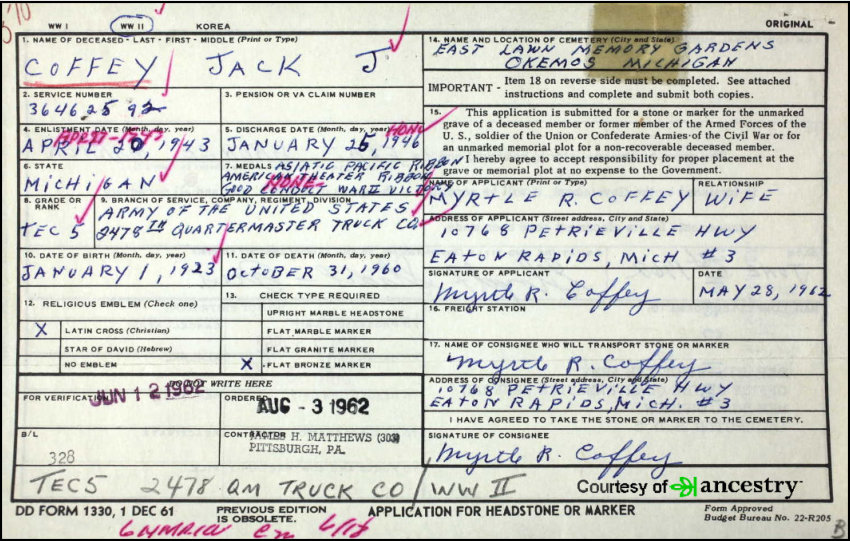 WW I WW II KOREA ORIGINAL
1. NAME OF DECEASED - LAST - FIRST - MIDDLE (Print or Type)
COFFEY JACK J
2. SERVICE NUMBER
36462592
3. PENSION OR VA CLAIM NUMBER
4. ENLISTMENT DATE (Month, day, year)
APRIL 20, 1943
5. DISCHARGE DATE (Month, day, year)
JANUARY 25, 1946
HON
6. STATE
MICHIGAN
7. MEDALS ASIATIC PACIFIC RIBBON
AMERICAN THEATER RIBBON
NONE
GOOD CONDUCT WAR II VICTORY
8. GRADE OR RANK
TEC 5
9. BRANCH OF SERVICE, COMPANY, REGIMENT, DIVISION
ARMY OF THE UNITED STATES
2478 TH QUARTERMASTER TRUCK CO.
10. DATE OF BIRTH (Month, day, year)
JANUARY 1, 1923
11. DATE OF DEATH (Month, day, year)
OCTOBER 31, 1960
12. RELIGIOUS EMBLEM (Check one)
X LATIN CROSS (Christian)
STAR OF DAVID (Hebrew)
NO EMBLEM
13. CHECK TYPE REQUIRED
UPRIGHT MARBLE HEADSTONE
FLAT MARBLE MARKER
FLAT GRANITE MARKER
X FLAT BRONZE MARKER
DO NOT WRITE HERE
FOR VERIFICATION
JUN 12 1962
ORDERED
AUG - 3 1962
B/L
328
CONTRACTOR H. MATTHEWS (303)
PITTSBURGH, PA.
14. NAME AND LOCATION OF CEMETERY (City and State)
EAST LAWN MEMORY GARDENS
OKEMOS MICHIGAN
IMPORTANT - Item 18 on reverse side must be completed. See attached
instructions and complete and submit both copies.
15. This application is submitted for a stone or marker for the unmarked
grave of a deceased member or former member of the Armed Forces of the
U. S., soldier of the Union or Confederate Armies of the Civil War or for
an unmarked memorial plot for a non-recoverable deceased member.
I hereby agree to accept responsibility for proper placement at the
grave or memorial plot at no expense to the Government.
NAME OF APPLICANT (Print or Type)
MYRTLE R. COFFEY
RELATIONSHIP
WIFE
ADDRESS OF APPLICANT (Street address, City and State)
10768 PETRIEVILLE HWY
EATON RAPIDS, MICH #3
SIGNATURE OF APPLICANT
Myrtle R. Coffey
DATE
MAY 28, 1962
16. FREIGHT STATION
17. NAME OF CONSIGNEE WHO WILL TRANSPORT STONE OR MARKER
Myrtle R. Coffey
ADDRESS OF CONSIGNEE (Street address, City and State)
10768 PETRIEVILLE HWY
EATON RAPIDS, MICH. #3
I HAVE AGREED TO TAKE THE STONE OR MARKER TO THE CEMETERY.
SIGNATURE OF CONSIGNEE
Myrtle R. Coffey
TEC5 2478 QM TRUCK CO / WW II
Courtesy of ancestry
DD FORM 1330, 1 DEC 61
PREVIOUS EDITION
IS OBSOLETE.
APPLICATION FOR HEADSTONE OR MARKER
Form Approved
Budget Bureau No. 22-R205
B